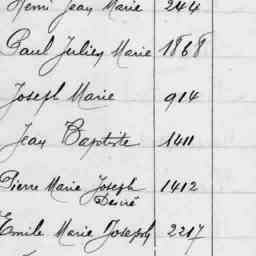 Henri Jean Marie 244
Paul Julien Marie 1868
Joseph Marie 914
Jean Baptiste 1411
Pierre Marie Joseph 1412
Desiré
Emile Marie Joseph 2217